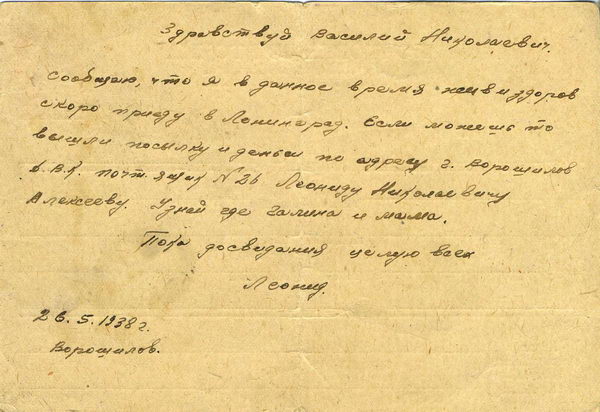 Здравствуй Василий Николаевич.
Сообщаю, что я в данное время жив и здоров
скоро приеду в Ленинград. Если можешь то
вышли посылку и деньги по адресу г. Ворошилов
Д.В.К. почт. ящик №26 Леониду Николаевичу
Алексееву. Узнай где Галина и мама.
Пока досвидания целую всех
Леонид.
26.5.1938 г.
Ворошилов.